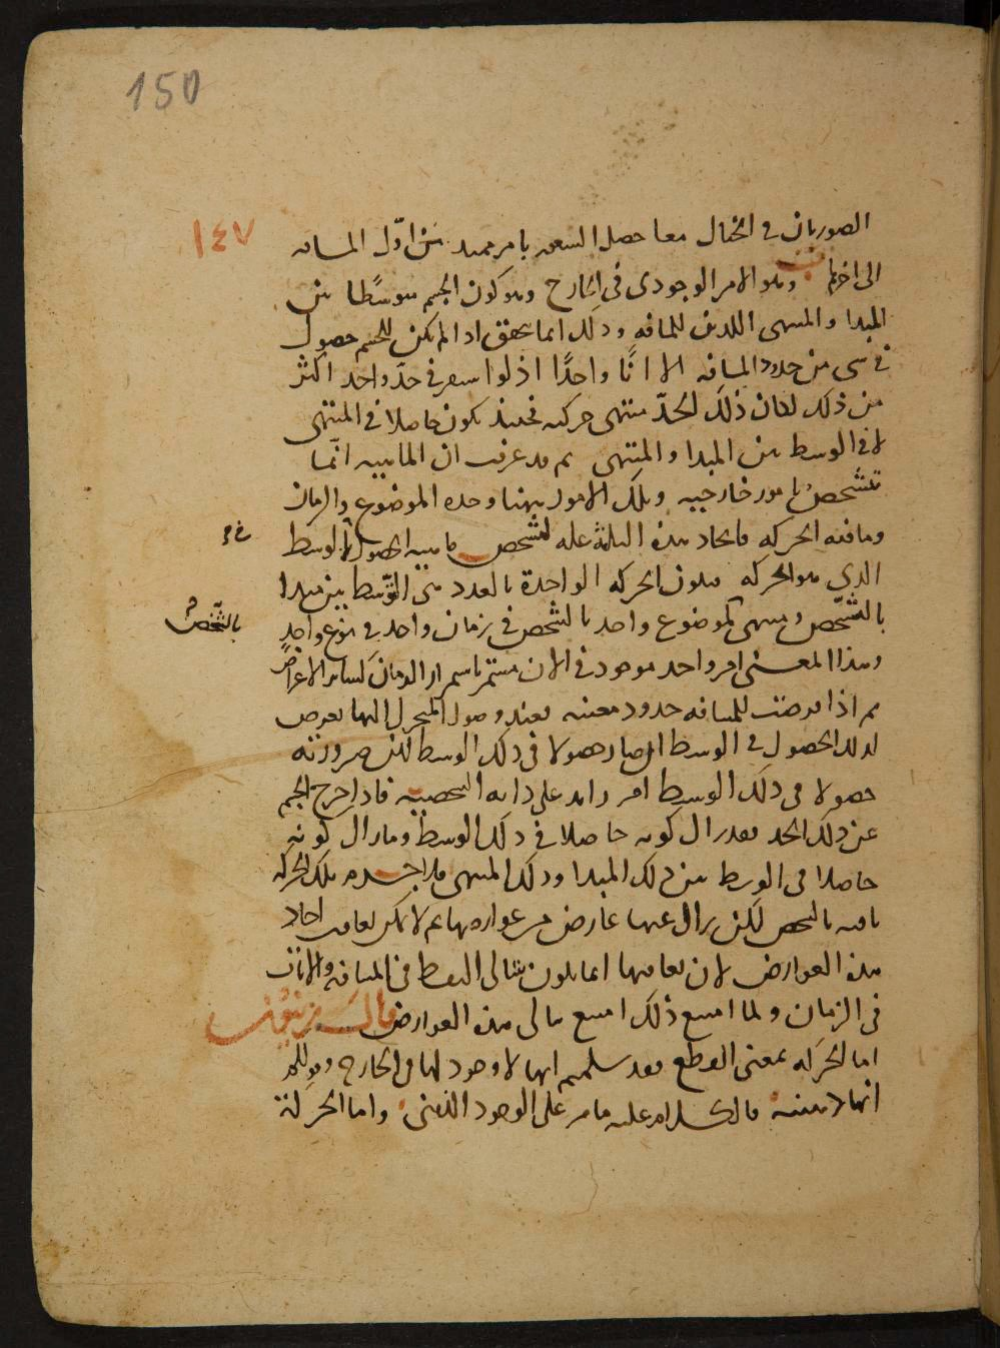 150
١٤٧
الصورتان في الخيال معا حصل الشعور بامر ممتد من اول المسافه
الى اخرها وهو الامر الوجودى فى الخارج وهو كون الجسم متوسطا بين
المبدا والمنتهى اللذين للمسافه وذلك انما يتحقق اذا لم يكن للجسم حصول
فى شى من حدود المسافه الا انًا واحدًا اذ لو استقر فى حدّ واحد اكثر
من ذلك لكان ذلك الحدّ منتهى حركته فحينئذ يكون حاصلا فى المنتهى
لا فى الوسط بين المبدا والمنتهى ثم قد عرفت ان الماهيه انّما
تتشخص بامور خارجيه وتلك الامور ههنا وحده الموضوع والزمان
وما فيه الحركه فاتحاد هذه الثلثة عله لتشخص ماهيه الحصول فى الوسط
فى
الذي هو الحركه فتكون الحركه الواحدة بالعدد هى التوّسط بين مبدا
بالشّخص ومنتهى لموضوع واحد بالشخص فى زمان واحد فى نوع واحدٍ
بالشّخص
وهذا المعنى امر واحد موجود فى الان مستمر باستمرار الزمان كسائر الاعراض
ثم اذا فرضت للمسافه حدود معينه فعند وصول المتحرك اليها يعرض
لذلك الحصول فى الوسط ان صار حصولا فى ذلك الوسط لكن صيرورته
حصولا فى ذلك الوسط امر زايد على ذاته الشخصيه فاذا خرج الجسم
عن ذلك الحد فقد زال كونه حاصلا فى ذلك الوسط وما زال كونه
حاصلا فى الوسط بين ذلك المبدا وذلك المنتهى فلا جرم تلك الحركه
باقيه بالشخص لكن يزال عنها عارض من عوارضها ثم لا يمكن تعاقب احاد
هذه العوارض لان تعاقبها انما يكون بتتالى النقط فى المسافه والانات
فى الزمان ولما امتنع ذلك امتنع تتالى هذه العوارض قالت
اما الحركه بمعنى القطع فقد سلمتم انها لا وجود لها فى الخارج وقولكم
انها ذهنيه فالكلام عليه ما مر على الوجود الذهنى واما الحركة